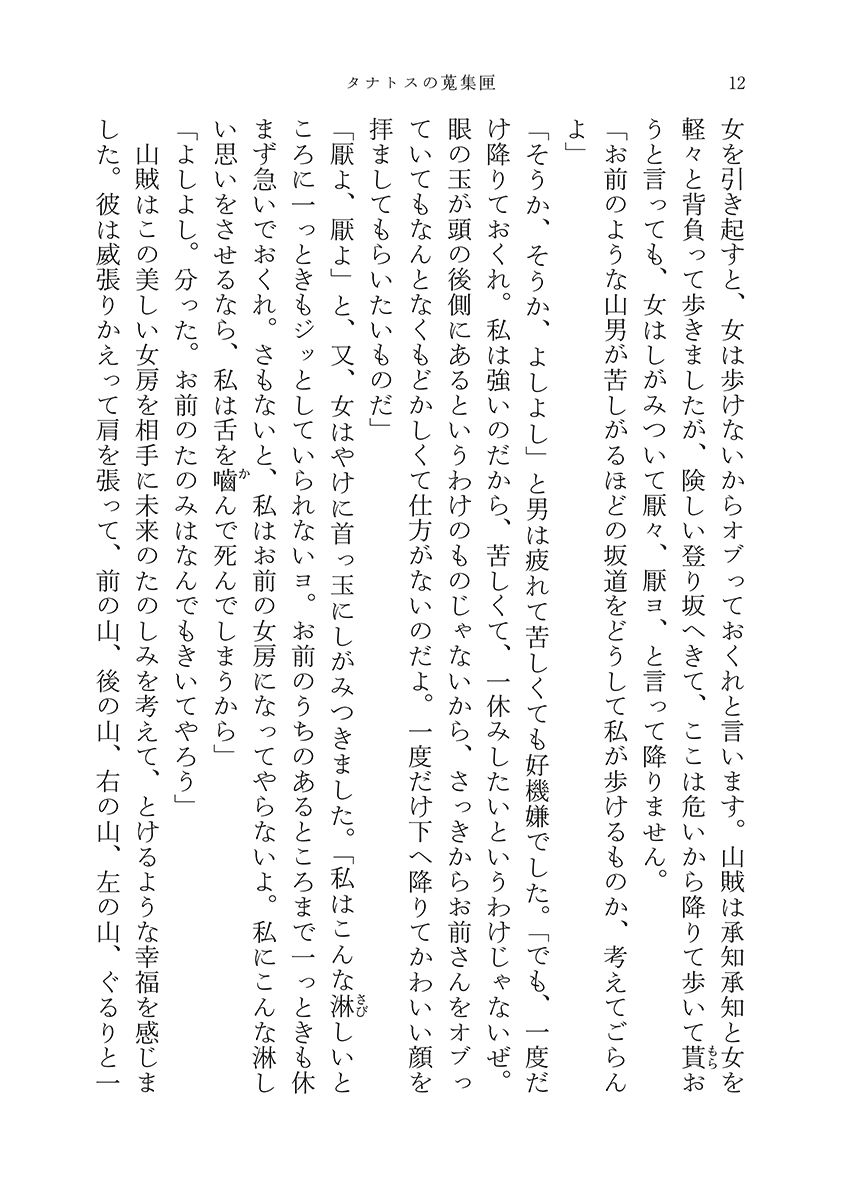 タナトスの蒐集匣
12
女を引き起すと、女は歩けないからオブっておくれと言います。山賊は承知承知と女を
軽々と背負って歩きましたが、険しい登り坂へきて、ここは危いから降りて歩いて貰お
うと言っても、女はしがみついて厭々、厭ヨ、と言って降りません。
「お前のような山男が苦しがるほどの坂道をどうして私が歩けるものか、考えてごらん
よ」
「そうか、そうか、よしよし」と男は疲れて苦しくても好機嫌でした。「でも、一度だ
け降りておくれ。私は強いのだから、苦しくて、一休みしたいというわけじゃないぜ。
眼の玉が頭の後側にあるというわけのものじゃないから、さっきからお前さんをオブっ
ていてもなんとなくもどかしくて仕方がないのだよ。一度だけ下へ降りてかわいい顔を
拝ましてもらいたいものだ」
「厭よ、厭よ」と、又、女はやけに首っ玉にしがみつきました。「私はこんな淋しいと
ころに一っときもジッとしていられないヨ。お前のうちのあるところまで一っときも休
まず急いでおくれ。さもないと、私はお前の女房になってやらないよ。私にこんな淋し
い思いをさせるなら、私は舌を嚙んで死んでしまうから」
「よしよし。分った。お前のたのみはなんでもきいてやろう」
山賊はこの美しい女房を相手に未来のたのしみを考えて、とけるような幸福を感じま
した。彼は威張りかえって肩を張って、前の山、後の山、右の山、左の山、ぐるりと一
もら
さび
か